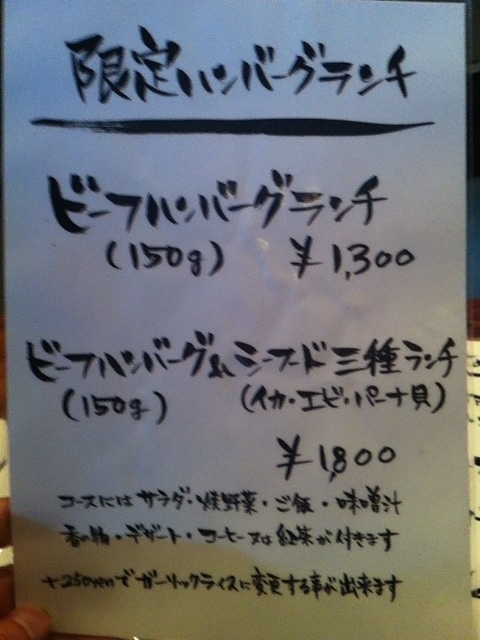 限定ハンバーグランチ
ビーフハンバーグランチ
(150g) ¥1,300
ビーフハンバーグ&シーフード三種ランチ
(150g) (イカ・エビ・パーナ貝)
¥1,800
コースにはサラダ・焼野菜・ご飯・味噌汁
香の物・デザート・コーヒー又は紅茶が付きます
+250yenでガーリックライスに変更する事が出来ます